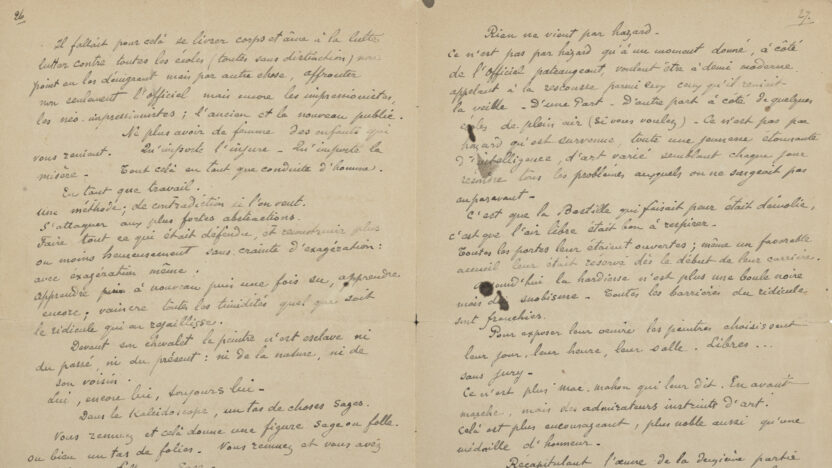 26
Il fallait pour celà se livrer corps et âme à la lutte
lutter contre toutes les écoles (toutes sans distinction) non
point en les dénigrant mais par autre chose, affronter
non seulement l'officiel mais encore les impressionnistes,
les néo-impressionnistes ; l'ancien et le nouveau public.
Ne plus avoir de femme des enfants qui
vous renient. Qu'importe l'injure - Qu'importe la
misère - Tout celà en tant que conduite d'homme.
En tant que travail.
Une méthode ; de contradiction si l'on veut.
S'attaquer aux plus fortes abstractions.
Faire tout ce qui était défendu, et reconstruir plus
ou moins heureusement sans crainte d'exagération :
avec exagération même.
apprendre à nouveau puis une fois su, apprendre
encore ; vaincre toutes les timidités quel que soit
le ridicule qui en rejaillisse.
Devant son chevalet le peintre n'est esclave ni
du passé, ni du présent : ni de la nature, ni de
son voisin.
lui, encore lui, toujours lui -
Dans le Kaléidoscope, un tas de choses sages.
Vous remuez et celà donne une figure sage ou folle.
ou bien un tas de folies. Vous remuez et vous avez
27.
Rien ne vient par hazard.
Ce n'est pas par hazard qu'à un moment donné, à côté
de l'Officiel pateaugeant, voulant être à demi moderne
appelant à la rescousse parmi eux ceux qu'il reniait
la veille - D'une part - D'autre part à côté de quelques
écoles de plein air (si vous voulez) - Ce n'est pas par
hazard qu'est survenue, toute une jeunesse étonnante
d'intelligence, d'art varié semblant chaque jour
résoudre tous les problèmes auxquels on ne songeait pas
auparavant -
C'est que la Bastille qui faisait peur était démolie,
c'est que l'air libre était bon à respirer -
Toutes les portes leur étaient ouvertes ; même un favorable
accueil leur était reservé dès le début de leur carrière.
Aujourd'hui la hardiesse n'est plus une boule noire
mais du snobisme - Toutes les barrières du ridicule
sont franchies.
Pour exposer leur œuvre les peintres choisissent
leur jour, leur heure, leur salle. Libres...
sans jury -
Ce n'est plus Mac, mahon qui leur dit. En avant
marche, mais des admirateurs instruits d'art.
Celà est plus encourageant, plus noble aussi qu'une
médaille d'honneur -
Récapitulant l'œuvre de la deuxième partie